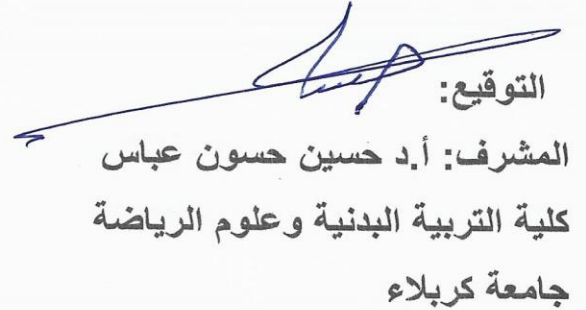 التوقيع:
المشرف: أ.د حسين حسون عباس
كلية التربية البدنية وعلوم الرياضة
جامعة كربلاء